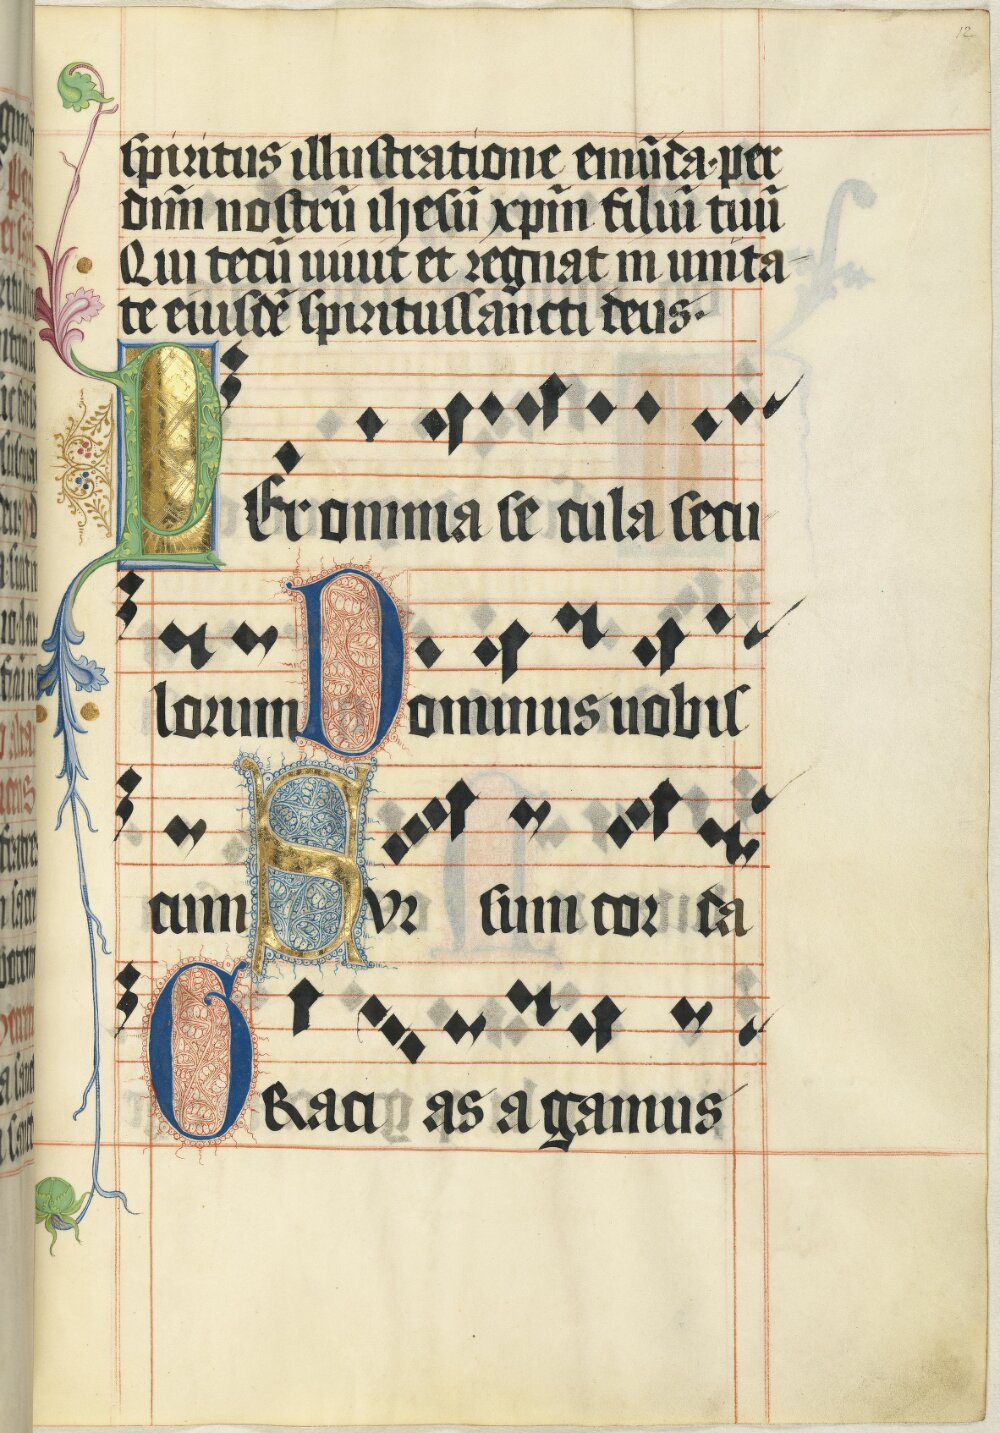 12
spiritus illustratione emūda·per
dn̄m nostrū ihesū xp̄m filiū tuū
Qui tecū uiuit et regnat in unita-
te eiusdē spiritussancti deus·
PEr omnia se cula secu
lorum Dominus uobis
cum SVr sum cor da
GRaci as a gamus